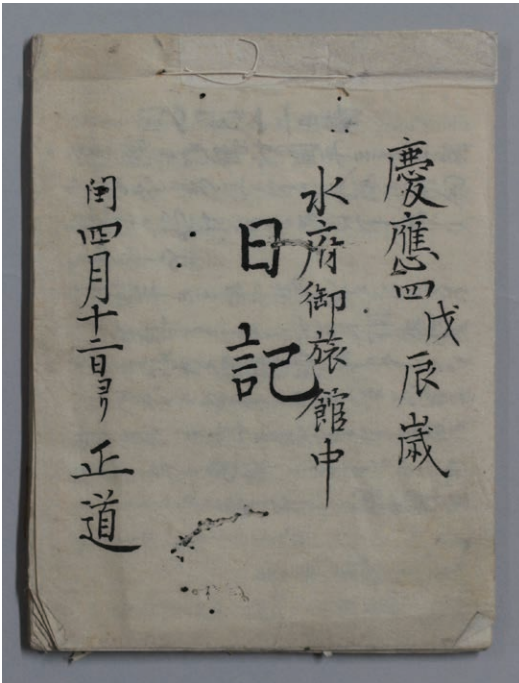 慶應四戊辰歳
水府御旅館中
日記
閏四月十二日ヨリ 正道